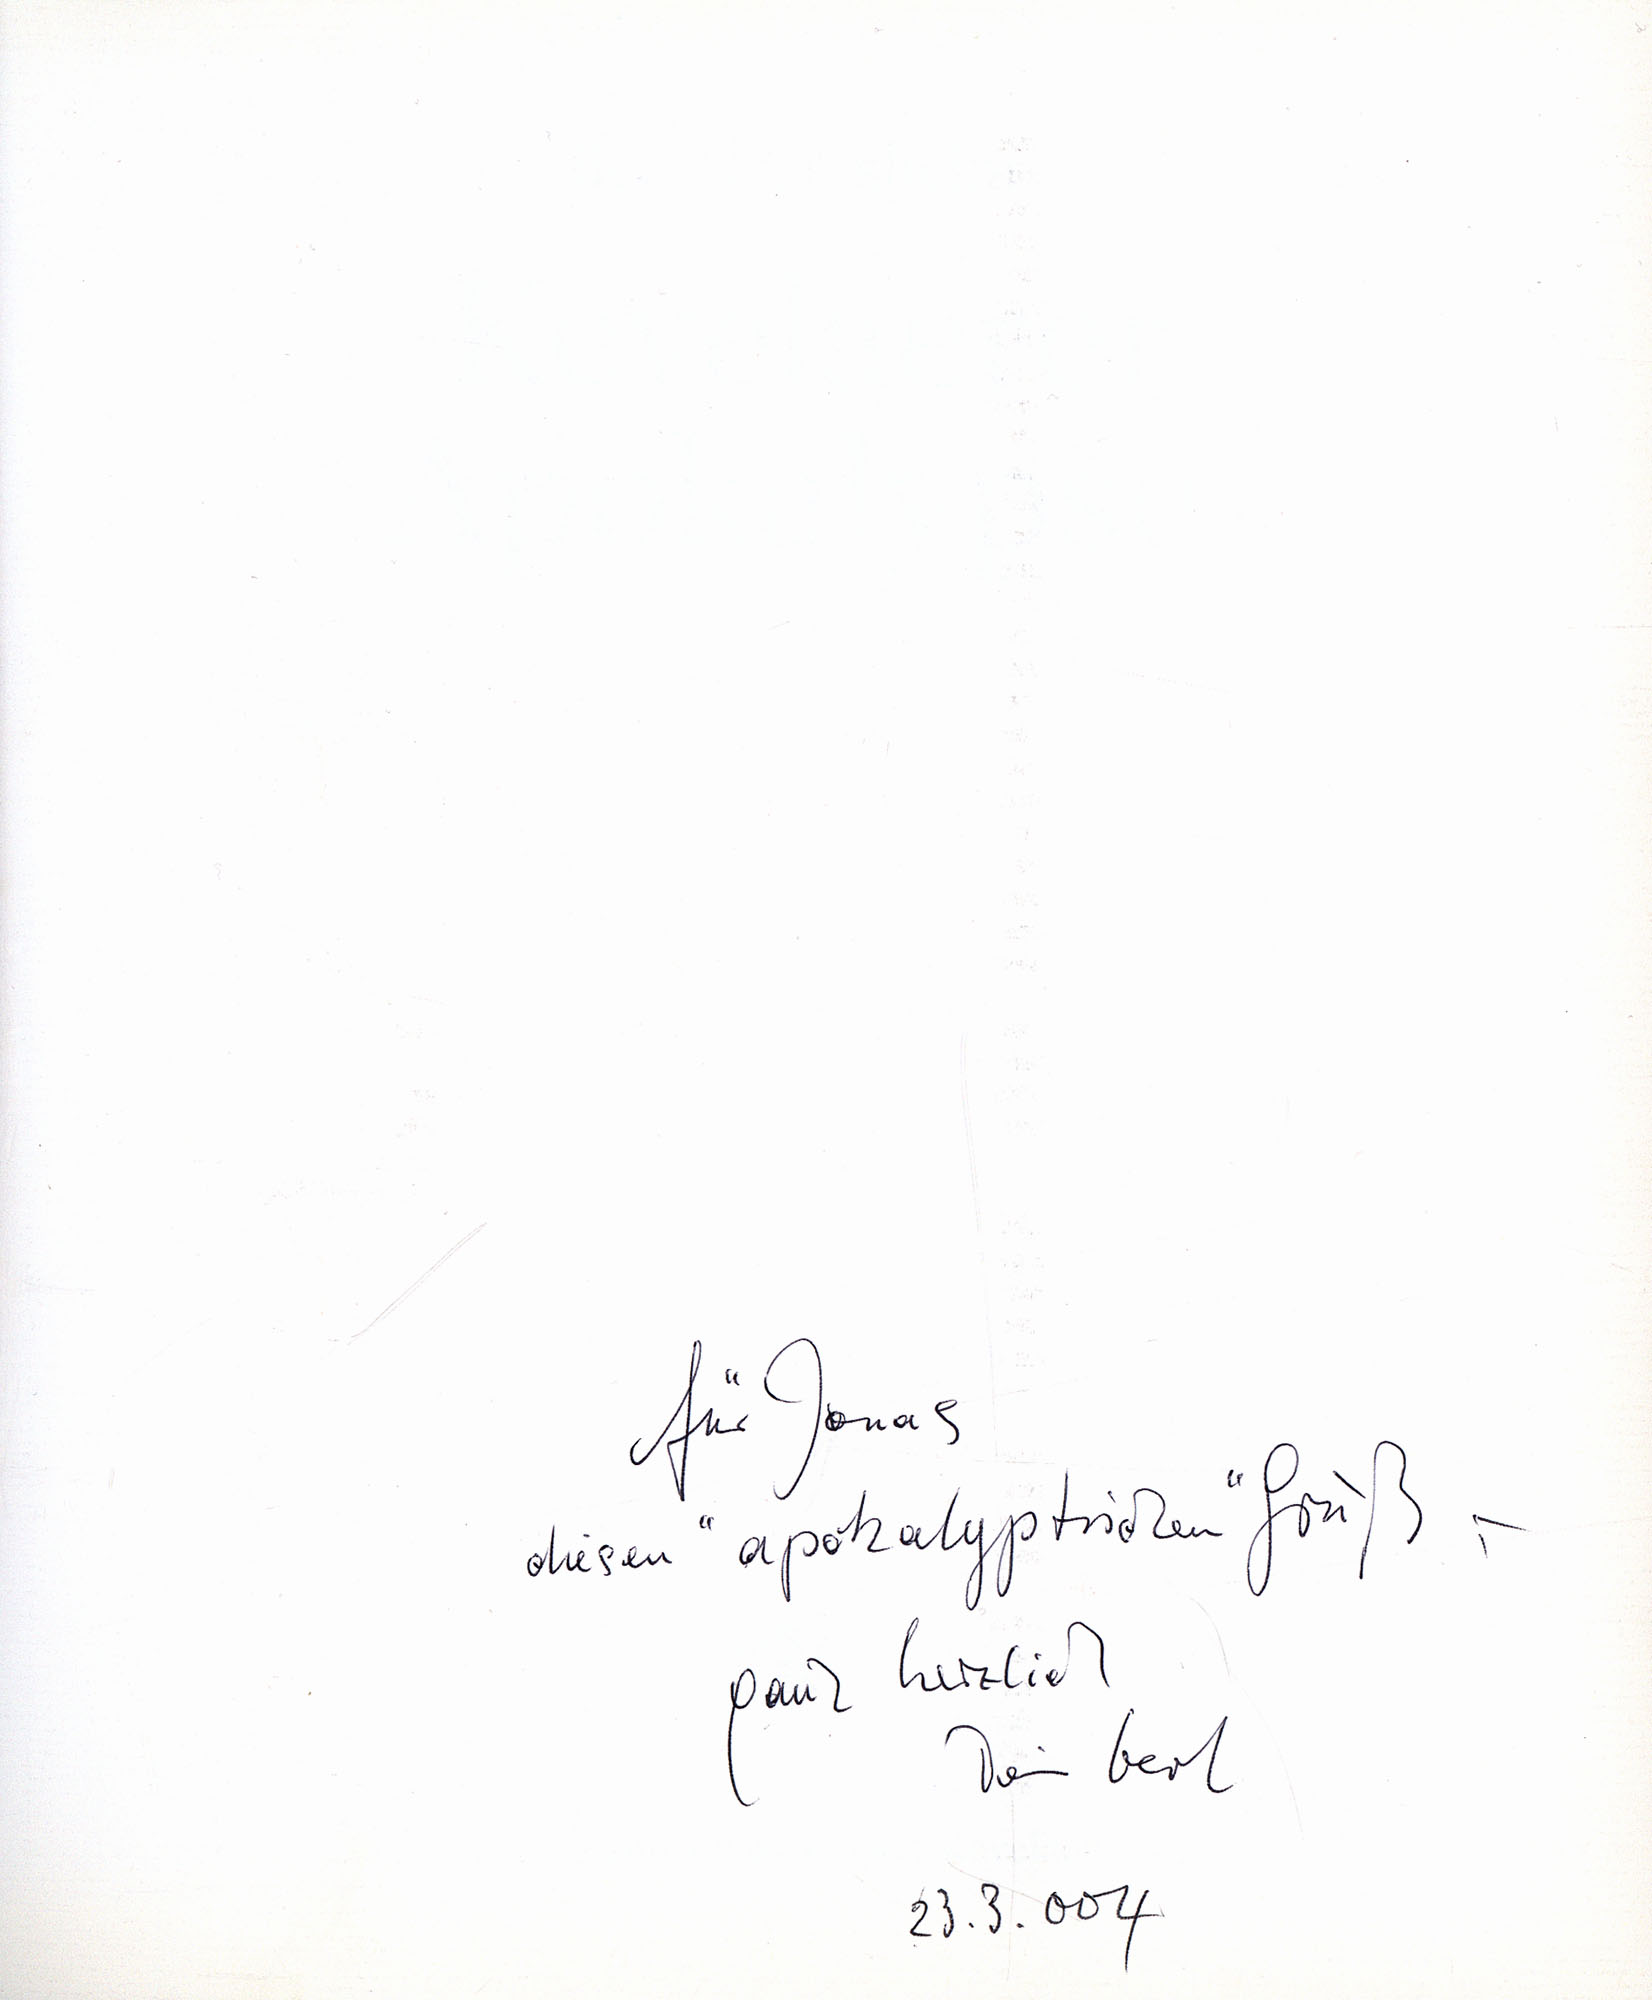 für Jonas
diesen "apokalyptischen" Gruß –
ganz herzlich
Dein
23.3.004